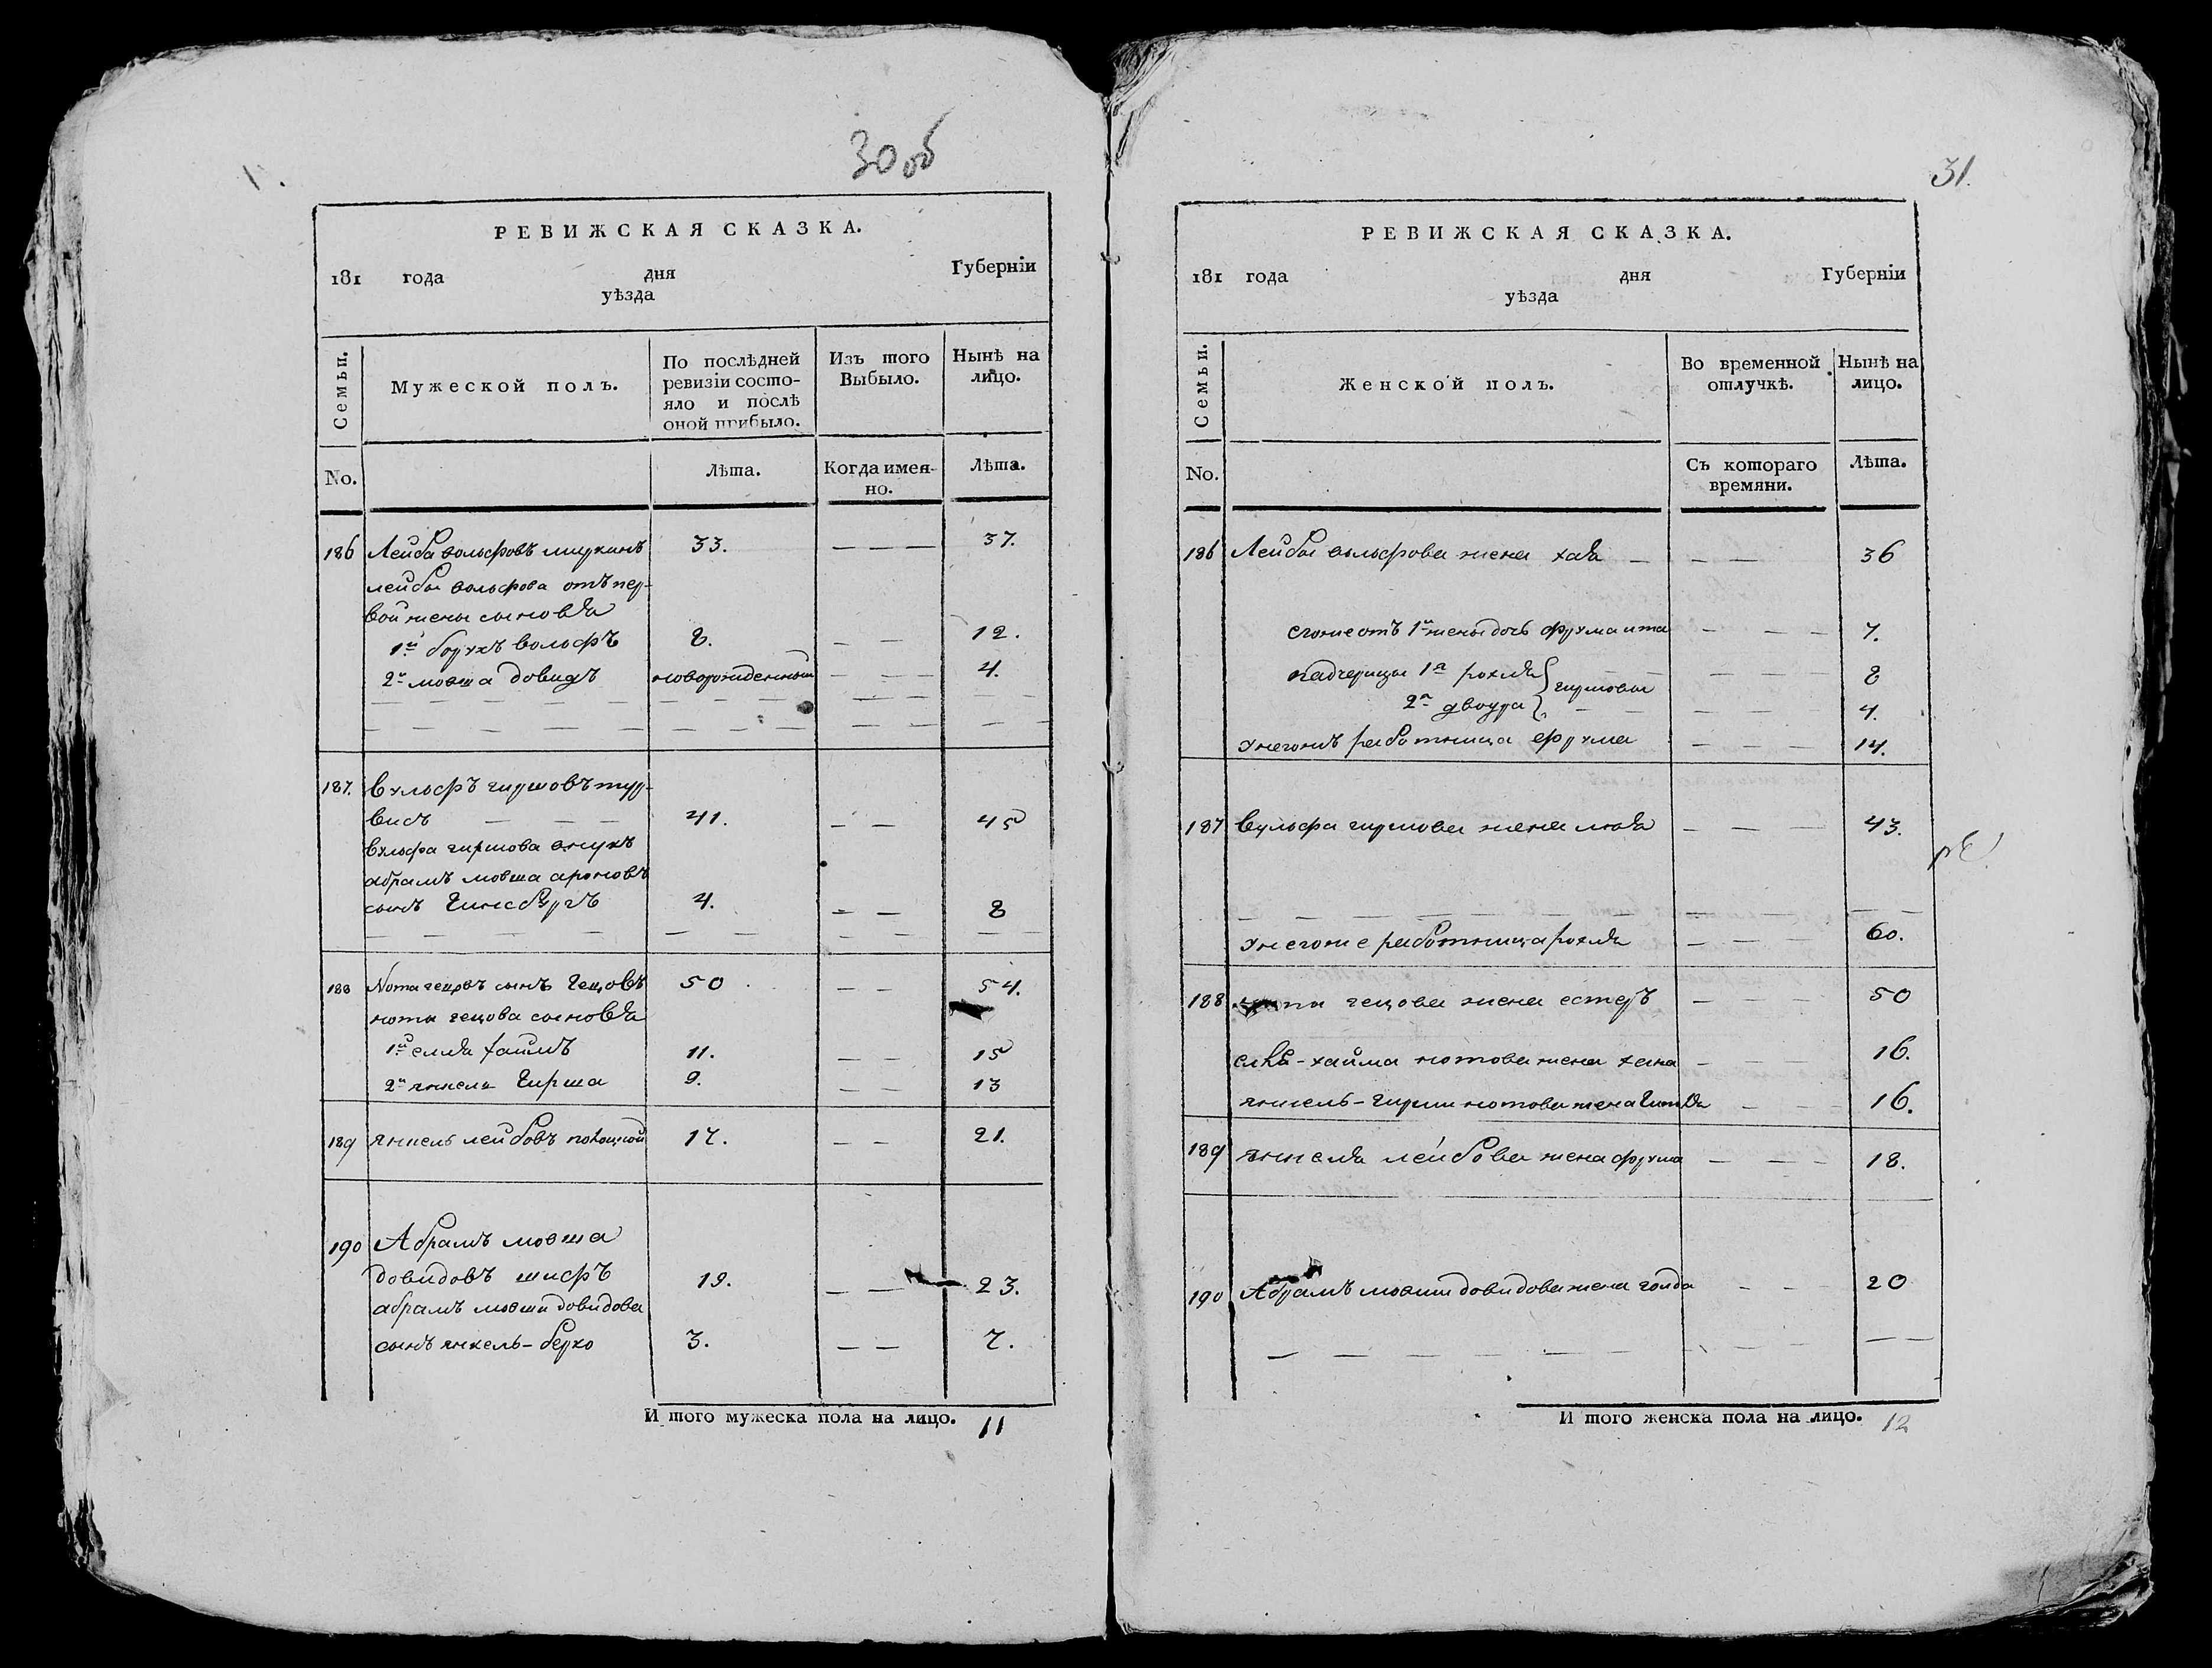 30 об
РЕВИЖСКАЯ СКАЗКА.
181 года дня Губернїи
уѣзда
Семьи.
Мужеской полъ.
По послѣдней ревизїи состояло и послѣ оной прибыло.
Изъ того Выбыло.
Нынѣ на лицо.
No.
Лѣта.
Когда именно.
Лѣта.
186 Лейба вольфовъ 33. — — — 37.
лейбы вольфова отъ пер-
вой жены сыновья
1й борухъ вольфъ 8. — — 12.
2й мовша довидъ новорожденный — — — 4.
187. Вульфъ гиршовъ гур-
висъ — — — 41. — — 45
Вульфа гиршова внукъ
абрамъ мовша ароновъ
сынъ Гинсбургъ 4. — — 8
188 Нота гецовъ сынъ Гецовъ 50 — — 54.
ноты гецова сыновья
1й елья хаимъ 11. — — 15
2й янкель Гирша 9. — — 13
189 янкель лейбовъ 17. — — 21.
190 Абрамъ мовша
довидовъ шифъ 19. — — 23.
абрамъ мовши довидова
сынъ янкель-берко 3. — — 7.
И того мужеска пола на лицо. 11
31.
РЕВИЖСКАЯ СКАЗКА.
181 года дня Губернїи
уѣзда
Семьи.
Женской полъ.
Во временной отлучкѣ.
Нынѣ на лицо.
No.
Съ котораго времяни.
Лѣта.
186 Лейбы вольфова жена хая — — — 36
егоже отъ 1й жены дочь фрума ита — — — 7.
падчерицы 1я рохля } гиршовы — — — 8
2я двоура — — — 4.
у негожъ работница фрума — — — 14.
187 Вульфа гиршова жена — — — 43.
у негоже работница рохля — — — 60.
188 ноты гецова жена естеръ — — — 50
елья-хаима нотова жена хана — — — 16.
янкель-гирши нотова жена — — 16.
189 янкеля лейбова жена фрума — — — 18.
190 Абрамъ мовши довидова жена голда — — 20
И того женска пола на лицо. 12